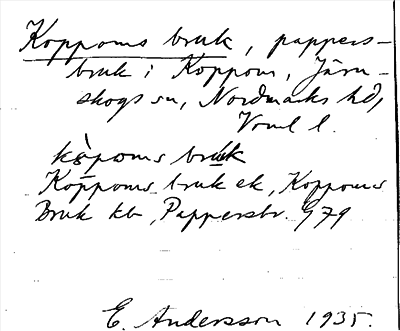 Koppoms bruk, pappers-
bruk i Koppom, Järn-
skogs sn, Nordmarks hd,
Vrml l.
kòpoms bruk
Koppoms bruk ek, Koppoms
Bruk kb, Pappersbr. G79
E. Andersson 1935.